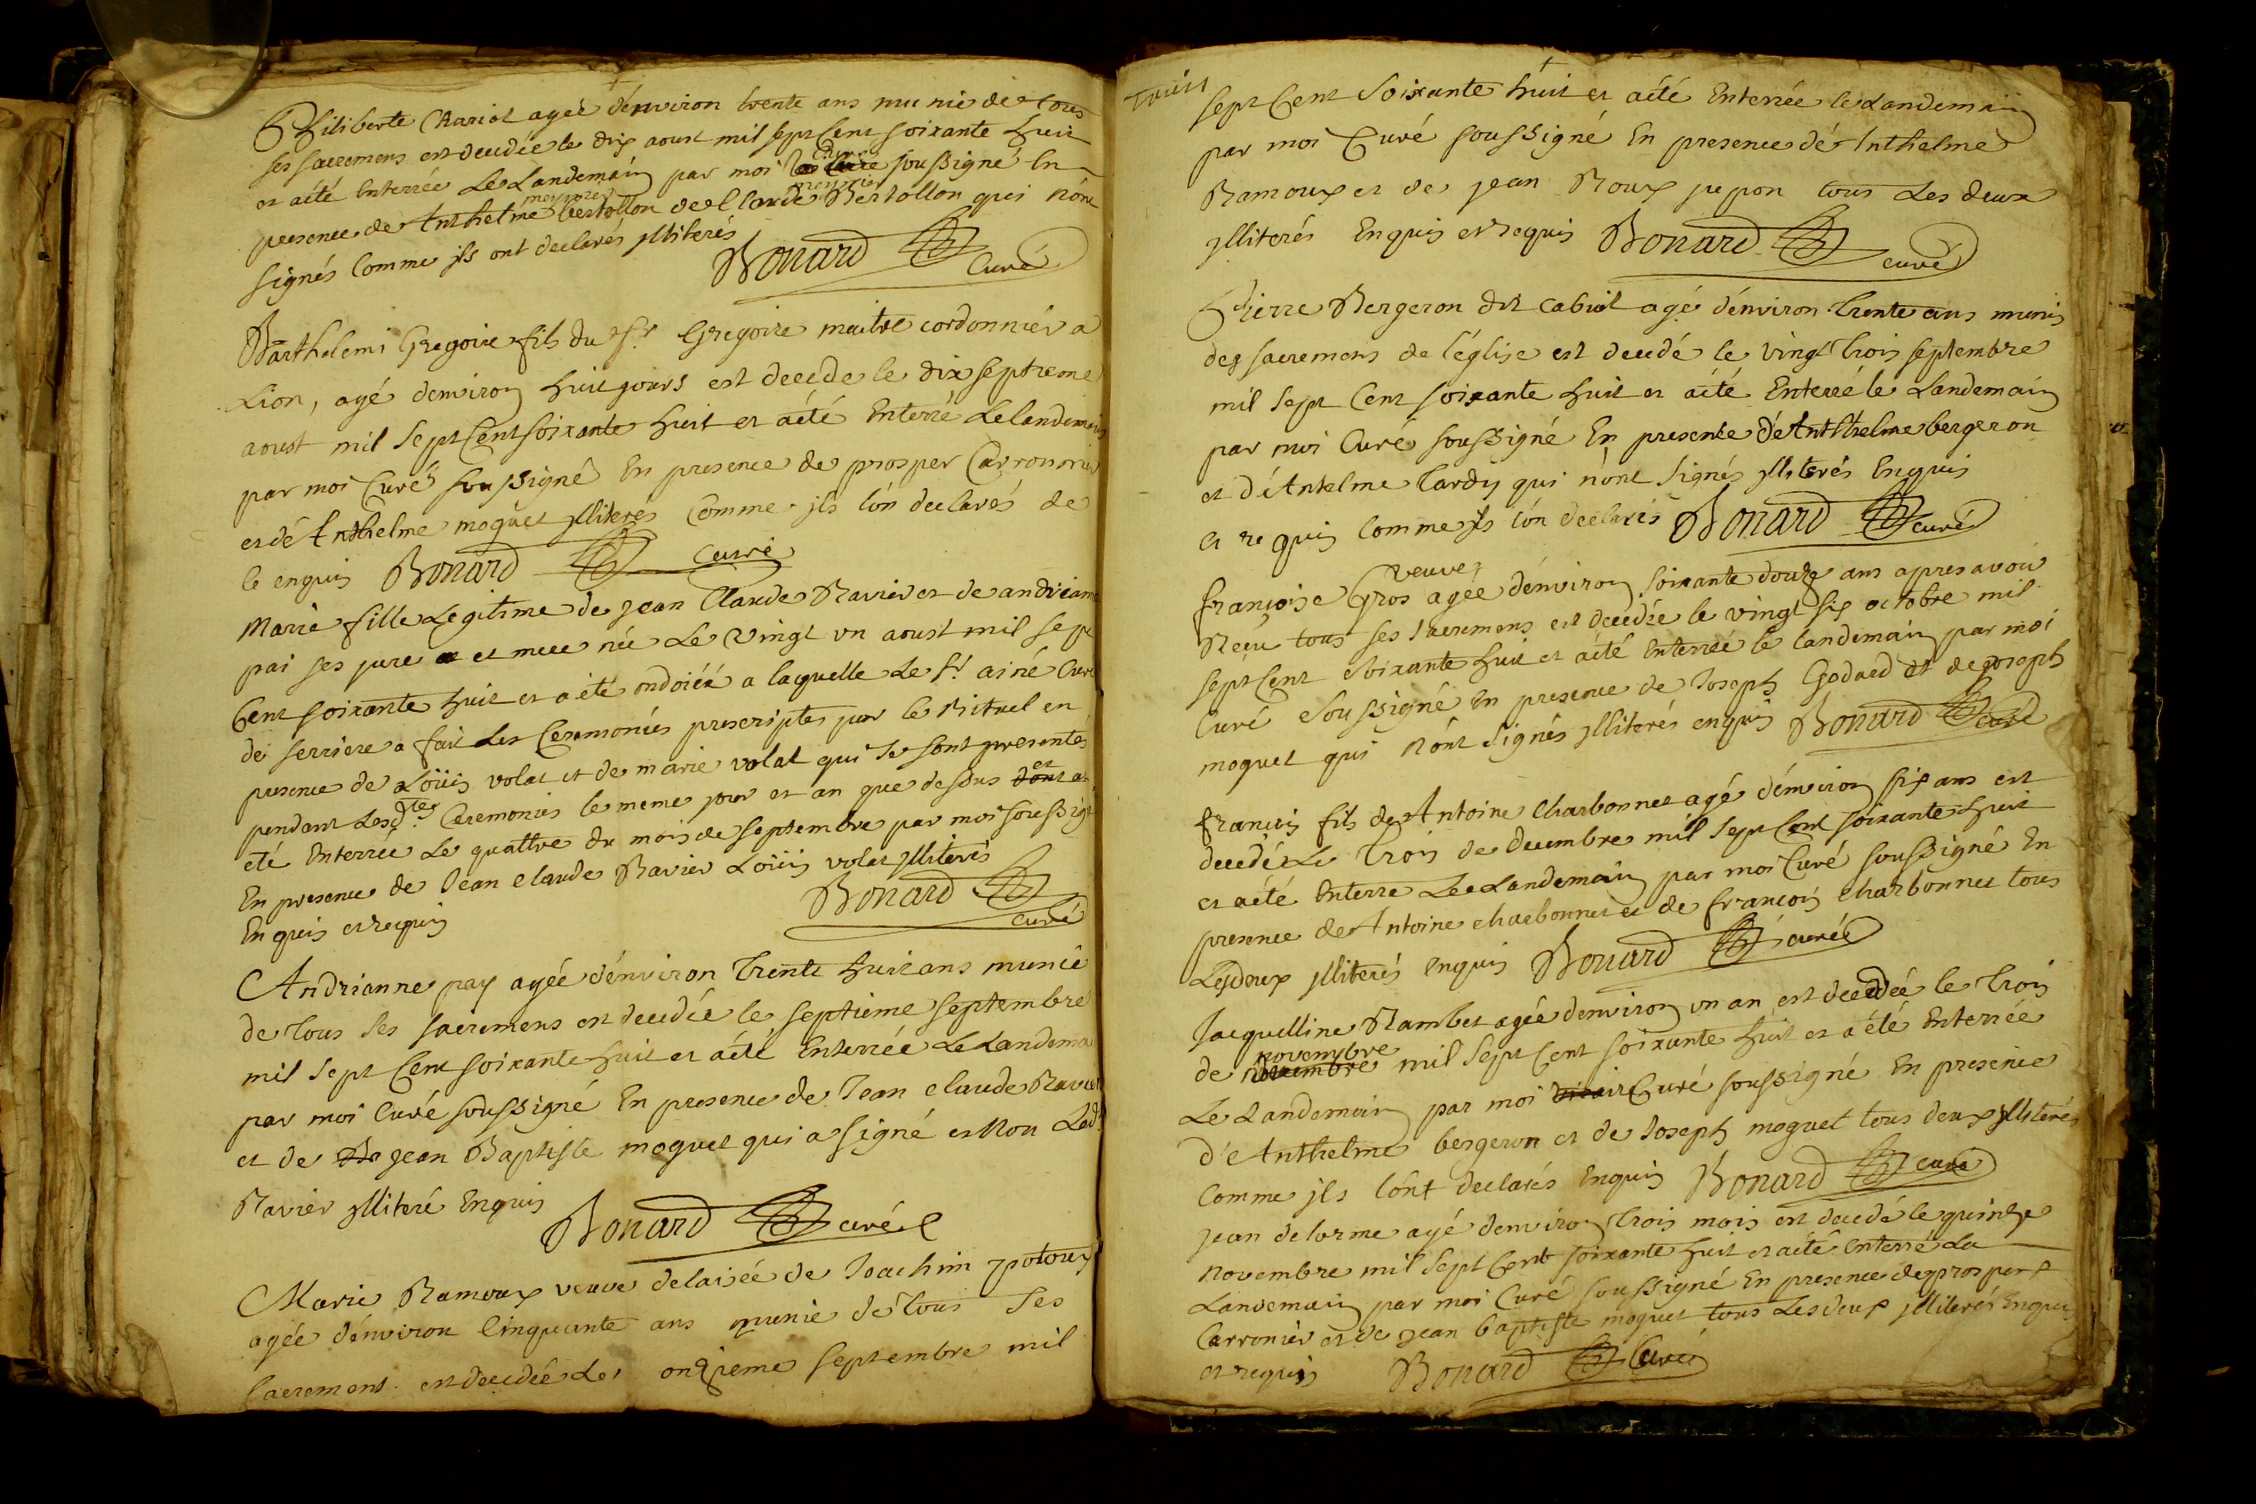 Philiberte Chariot agée dénviron trente ans munie de tous
ses sacremens est decedée le dix aoust mil sept Cent soixante huit
et aété Enterrée Le Landemain par moi Curé soussigné En
presence de Anthelme Bertollon de Claude Bertollon qui nónt
signés Comme jls ont declarés jlliterés
Bonard Curé
Barthelemi Gregoire fils du sr. Gregoire maitre cordonnier a
Lion, agé denviron huit jours est decede le dix septieme
aoust mil sept Cent soixante huit et aété Enterré Le landemain
par moi Curé soussigné En presence de prosper Carronnier
et dé Anthelme moguet jlliteres Comme jls lón declarés de
le enquis Bonard Curé
Marie fille Legitime de jean Claude Ravier et de andrianne
pai ses pere et mere née Le vingt un aoust mil sept
Cent soixante huit et a été ondoiée a laquelle Le sr. ainé Curé
de serriere a fait Les Ceremonies prescriptes par le Rituel en
presence de Loüis volat et de marie volat qui se sont presentés
pendant Lesdtes Ceremonies le meme jour et an que dessus et a
eté Enterrée Le quattre du mois de septembre par moi soussigné
En presence de Jean claude Ravier Loüis volat jlliterés
Enquis et requis Bonard curé
Andrianne pay agée dénviron Trente huit ans munie
de tous ses sacremens est decedée le septieme septembre
mil sept Cent soixante huit et aété Enterrée Le Landema
par moi Curé soussigné En presence de Jean claude Ravier
et de jean Baptiste moguet qui a signé et non Led
Ravier jlliteré Enquis
Bonard curé
Marie Ramoux veuve delaisée de Joachim
agée dénviron Cinquante ans munie dé tous ses
sacremens est decedée Le onzieme septembre mil
sept Cent Soixante huit et aété Enterrée le Landemain
par moi Curé soussigné En presence dé Anthelme
Ramoux et de jean Roux jupon tous Les deux
jlliterés Enquis et requis Bonard curé
Pierre Bergeron dit cabiot agé dénviron Trente ans munis
des sacremens de l'église est decedé le vingt Trois septembre
mil sept Cent soixante huit et aété Enterré le Landemain
par moi Curé soussigné En presence dé Anthelme bergeron
et d'é Antelme Tardy qui nónt signés jlliterés Enquis
et requis Comme jls lón declarés Bonard curé
veuve
françoise Gros agée dénviron soixante douze ans apres avoir
Reçu tous ses sacremens est decedée le vingt six octobre mil
sept Cent soixante huit et aété Enterrée le landemain par moi
Curé soussigné En presence de Joseph Godard et de joseph
moguet qui nónt signés jlliterés enquis Bonard curé
françois fils de Antoine Charbonnet agé dénviron six ans est
decedé Le Trois de decembre mil sept Cent soixante huit
et aété Enterre Le Landemain par moi Curé soussigné En
presence de Antoine charbonnet et de françois charbonnet tous
Lesdeux jlliterés enquis Bonard curé
Jacquelline Rambet agée denviron un an est decedée le Trois
de novembre mil sept Cent soixante huit et a été Enterrée
Le Landemain par moi Curé soussigné En presence
d'é Anthelme bergeron et de Joseph moguet tous deux jlliterés
Comme jls lónt declarés Enquis Bonard curé
jean delorme agé denviron Trois mois est decedé le quinze
novembre mil sept Cent soixante huit et aété Enterré La
Landemain par moi Curé soussigné En presence de prosper
Carronier et de jean baptiste moguet tous Les deux jlliterés Enqui
et requis Bonard Curé